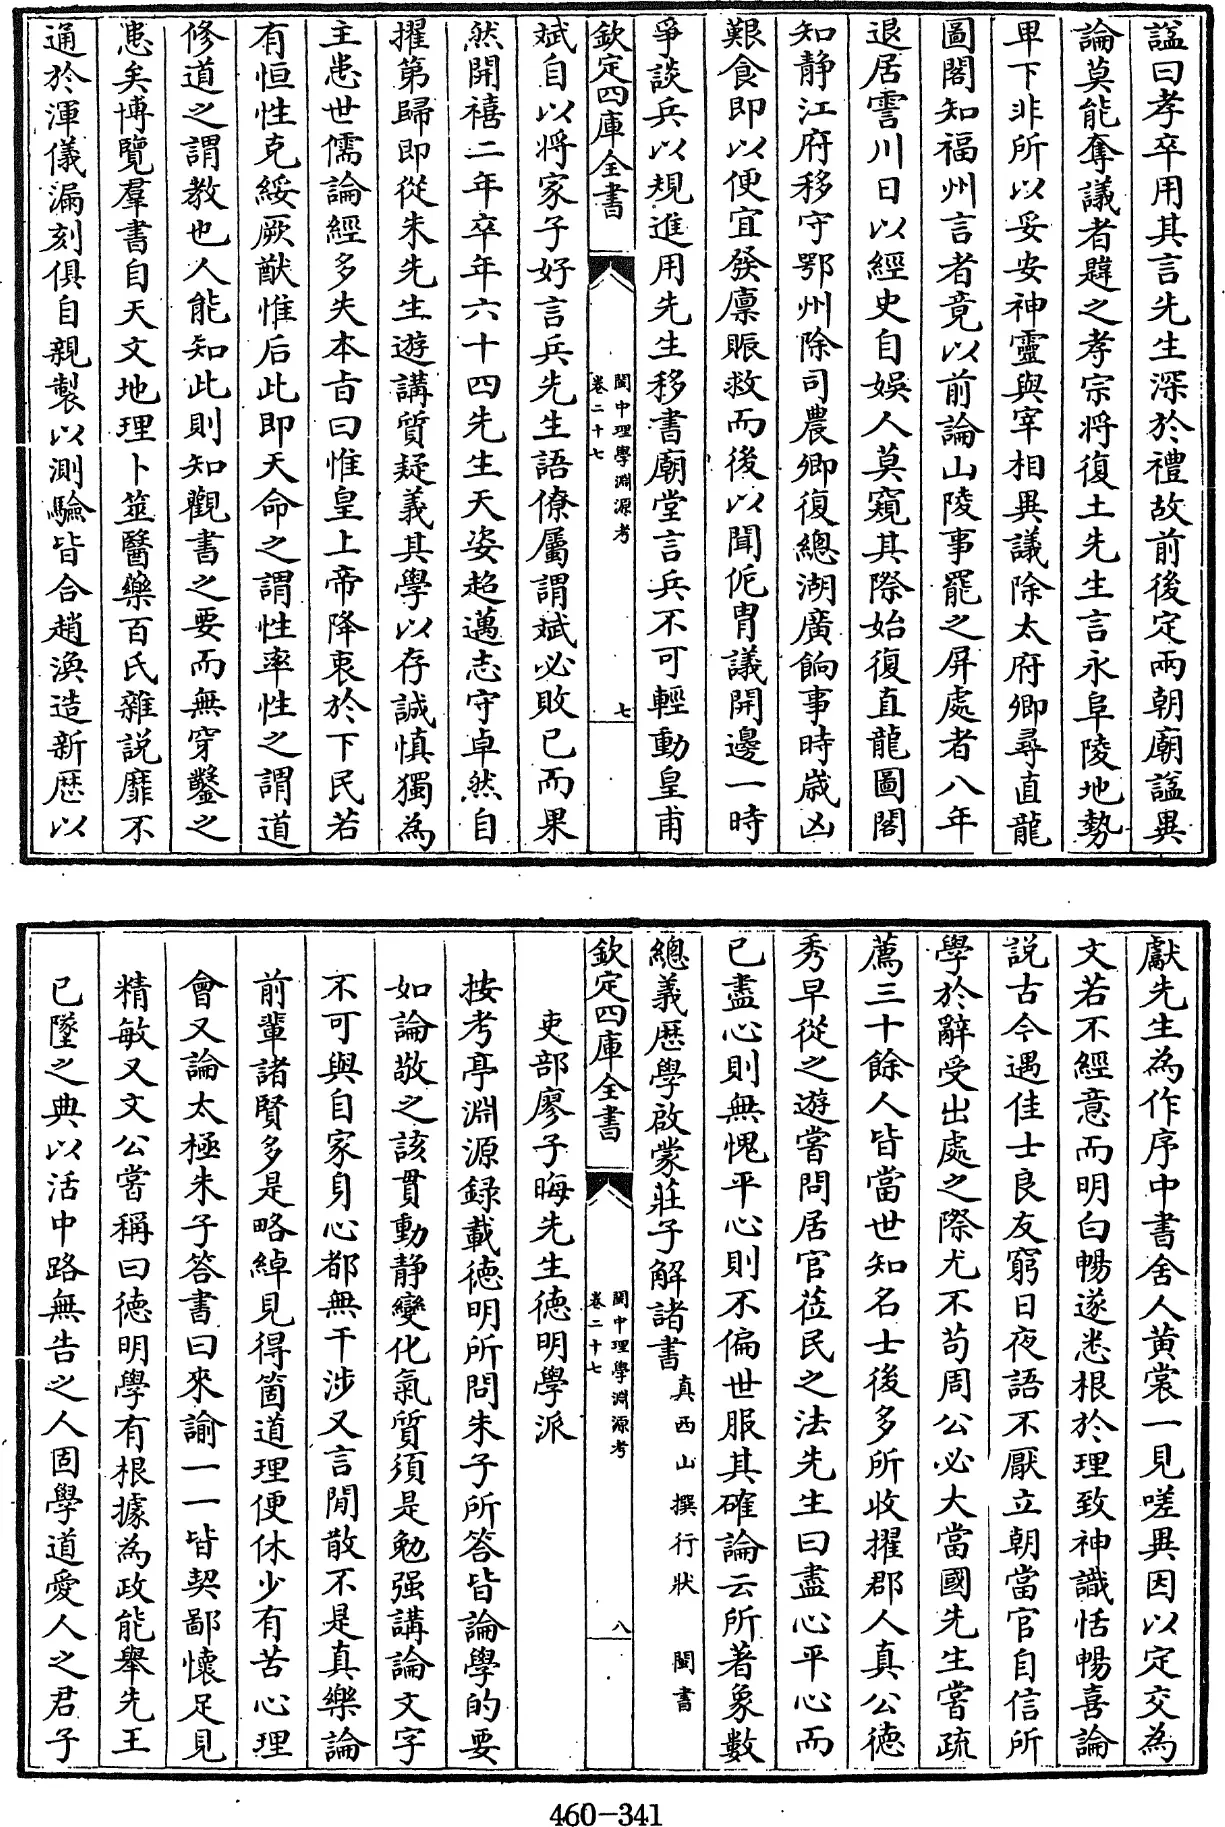 諡曰孝卒用其言先生深於禮故前後定兩朝廟諡異
論莫能奪議者韙之孝宗將復土先生言永阜陵地勢
卑下非所以妥安神靈與宰相異議除太府卿尋直龍
圖閣知福州言者竟以前論山陵事罷之屏處者八年
退居霅川日以經史自娛人莫窺其際始復直龍圖閣
知静江府移守鄂州除司農卿復總湖廣餉事時歲凶
艱食即以便宜發廪賑救而後以聞侂胄議開邊一時
爭談兵以規進用先生移書廟堂言兵不可輕動皇甫
欽定四庫全書
閩中理學淵源考
卷二十七
七
斌自以將家子好言兵先生語僚屬謂斌必敗已而果
然開禧二年卒年六十四先生天姿超邁志守卓然自
擢第歸即從朱先生遊講質疑義其學以存誠慎獨為
主患世儒論經多失本㫖曰惟皇上帝降衷於下民若
有恒性克綏厥猷惟后此即天命之謂性率性之謂道
修道之謂教也人能知此則知觀書之要而無穿鑿之
患矣博覽羣書自天文地理卜筮醫藥百氏雜説靡不
通於渾儀漏刻俱自親製以測驗皆合趙渙造新歴以
獻先生為作序中書舍人黄裳一見嗟異因以定交為
文若不經意而明白暢遂悉根於理致神識恬暢喜論
説古今遇佳士良友窮日夜語不厭立朝當官自信所
學於辭受出處之際尤不苟周公必大當國先生嘗疏
薦三十餘人皆當世知名士後多所收擢郡人真公徳
秀早從之遊嘗問居官莅民之法先生曰盡心平心而
已盡心則無愧平心則不偏世服其確論云所著象數
總義歴學啟蒙莊子解諸書真西山撰行狀 閩書
欽定四庫全書
閩中理學淵源考
卷二十七
八
吏部廖子晦先生徳明學派
按考亭淵源録載徳明所問朱子所答皆論學的要
如論敬之該貫動静變化氣質須是勉强講論文字
不可與自家身心都無干涉又言閒散不是真樂論
前輩諸賢多是略綽見得箇道理便休少有苦心理
會又論太極朱子答書曰來諭一一皆契鄙懷足見
精敏又文公嘗稱曰徳明學有根據為政能舉先王
已墜之典以活中路無告之人固學道愛人之君子
460-341